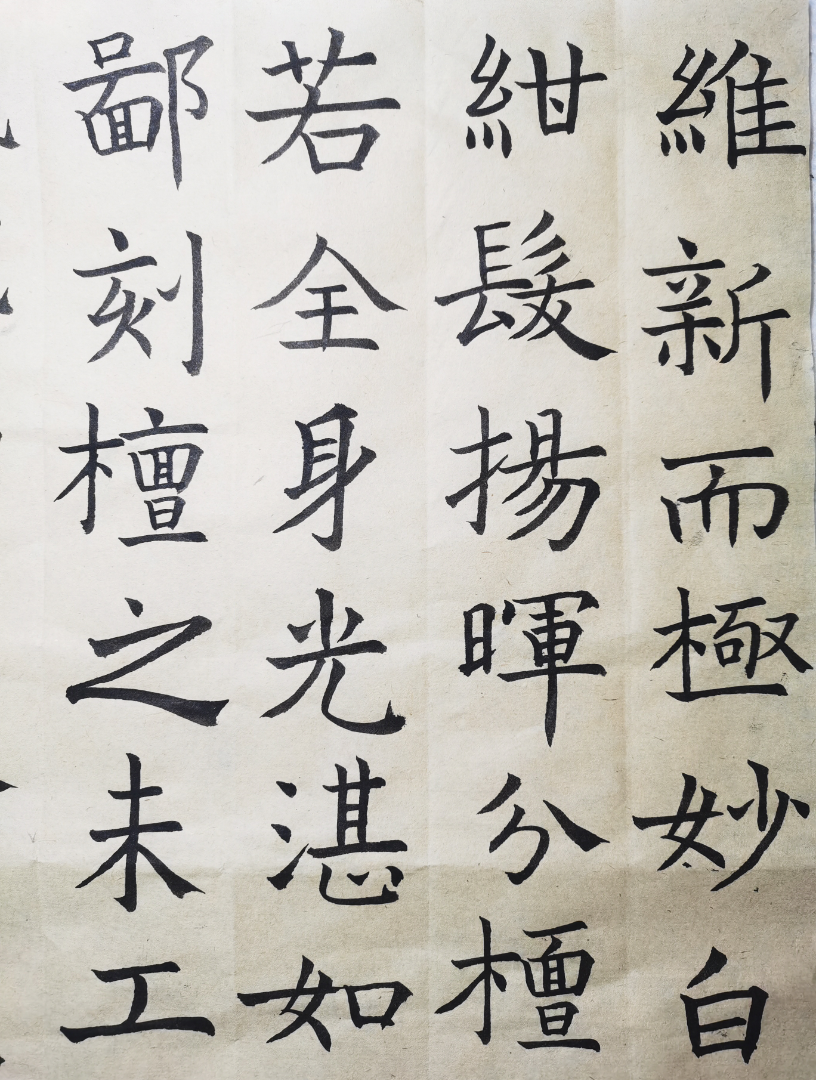 維新而極妙白
紺髮揚暉分檀
若全身光湛如
鄙刻檀之未工